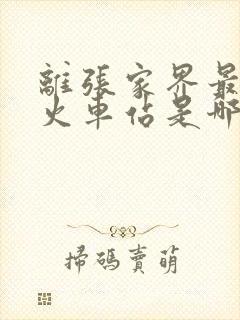 離張家界最
火車佔是哪
掃碼賣萌